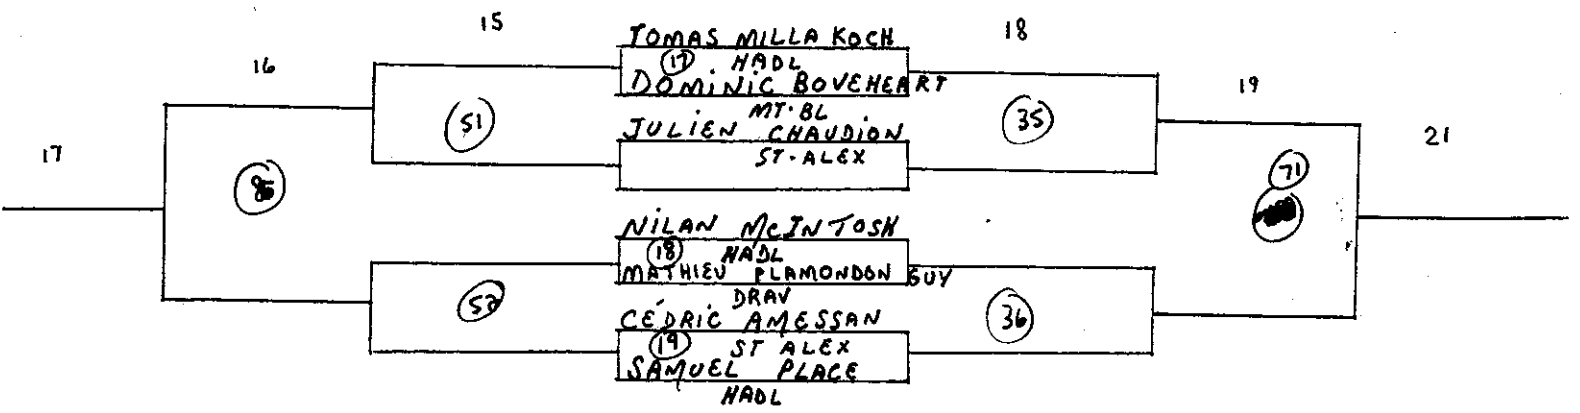 15
18
16
19
17
21
TOMAS MILLA KOCH
17 HADL
DOMINIC BOVEHEART
MT.BL
51
35
JULIEN CHAUDION
ST.ALEX
71
NILAN McINTOSH
18 HADL
MATHIEU PLAMONDON GUY
DRAV
52
36
CÉDRIC AMESSAN
19 ST ALEX
SAMUEL PLACE
HADL